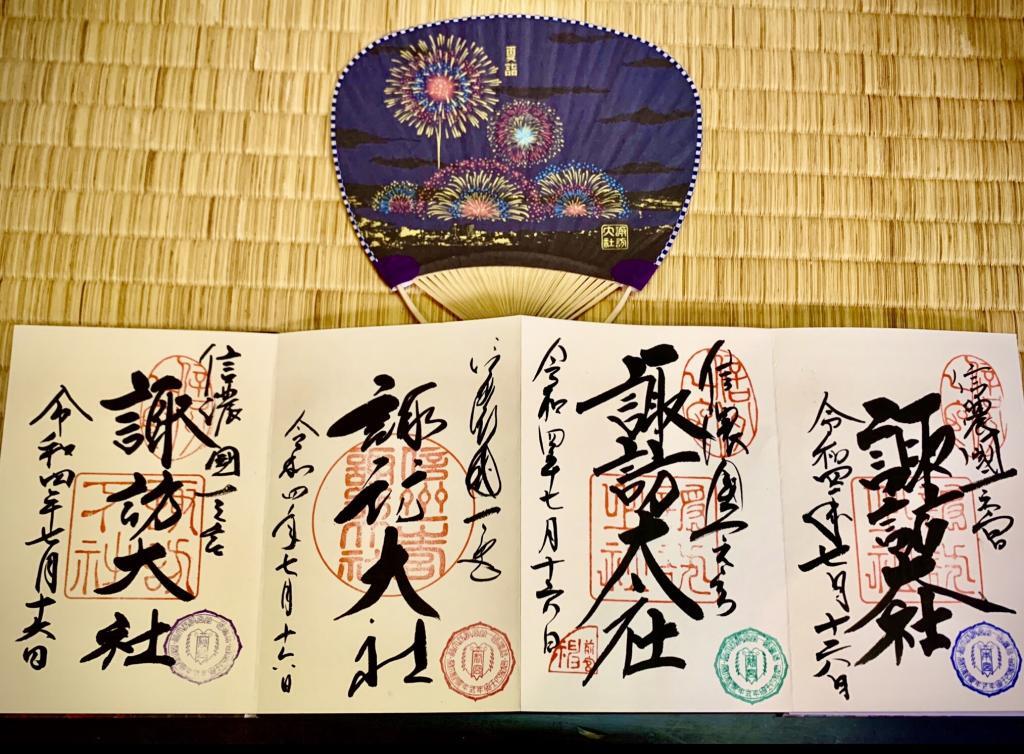 夏詣
諏訪
大社
信濃國一之宮
諏訪大社
令和四年七月十六日
信濃國一之宮
諏訪大社
令和四年七月十六日
前宮
信濃國一之宮
諏訪大社
令和四年七月十六日
信濃國一之宮
諏訪大社
令和四年七月十六日